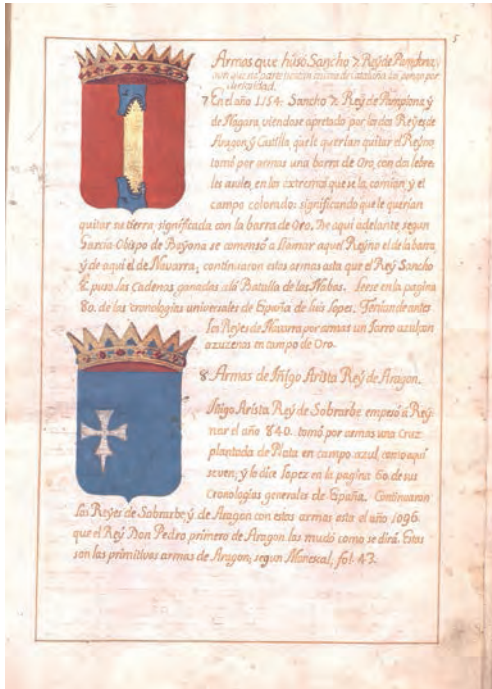 5
Armas que húso Sancho 7 Rey de Pamplona,
7 En el año 1154: Sancho 7 Rey de Pamplona y
de Nagara, viendose apretado por los dos Reyes de
Aragon, y Castilla, que le querian quitar el Reyno,
tomó por armas una barra de Oro, con dos lebre
les azules, en los extremos que se la comian, y el
campo colorado: significando que le querian
quitar su tierra, significada con la barra de Oro. De aqui adelante, segun
Garcia Obispo de Bayona se comensó a llamar aquel Reyno el de la barra,
y de aqui el de Navarra; continuaron estas armas asta que el Rey Sancho
8. puso las Cadenas ganadas a la Batalla de las Nabas. Leese en la pagina
80. de las cronologias universales de España de luis lopes. Tenian de antes
los Reyes de Navarra por armas un Jarro azul con
azuzenas en campo de Oro.
8. Armas de Iñigo Arista Rey de Aragon.
Iñigo Arista Rey de Sobrarbe empesó a Rey-
nar el año 840. tomó por armas una Cruz
plantada de Plata en campo azul, como aqui
se ven; y lo dice Lopez en la pagina 60. de sus
Cronologias generales de España. Continuaron
los Reyes de Sobrarbe y de Aragon con estas armas asta el año 1096.
que el Rey Don Pedro primero de Aragon las mudó como se dirá. Estas
son las primitivas armas de Aragon; segun Monescal, fol. 43.